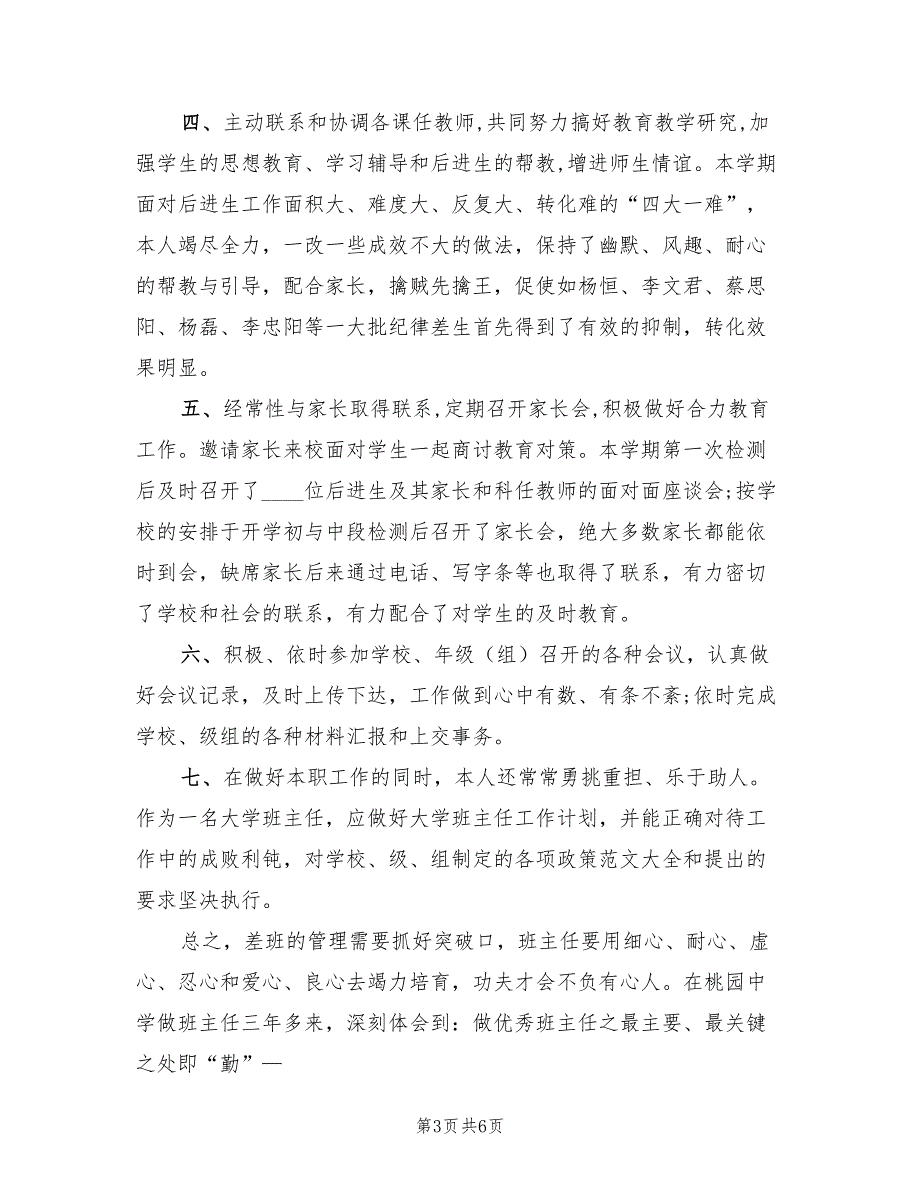 四、主动联系和协调各课任教师,共同努力搞好教育教学研究,加
强学生的思想教育、学习辅导和后进生的帮教,增进师生情谊。本学期
面对后进生工作面积大、难度大、反复大、转化难的“四大一难”，
本人竭尽全力，一改一些成效不大的做法，保持了幽默、风趣、耐心
的帮教与引导，配合家长，擒贼先擒王，促使如杨恒、李文君、蔡思
阳、杨磊、李忠阳等一大批纪律差生首先得到了有效的抑制，转化效
果明显。
五、经常性与家长取得联系,定期召开家长会,积极做好合力教育
工作。邀请家长来校面对学生一起商讨教育对策。本学期第一次检测
后及时召开了____位后进生及其家长和科任教师的面对面座谈会;按学
校的安排于开学初与中段检测后召开了家长会，绝大多数家长都能依
时到会，缺席家长后来通过电话、写字条等也取得了联系，有力密切
了学校和社会的联系，有力配合了对学生的及时教育。
六、积极、依时参加学校、年级（组）召开的各种会议，认真做
好会议记录，及时上传下达，工作做到心中有数、有条不紊;依时完成
学校、级组的各种材料汇报和上交事务。
七、在做好本职工作的同时，本人还常常勇挑重担、乐于助人。
作为一名大学班主任，应做好大学班主任工作计划，并能正确对待工
作中的成败利钝，对学校、级、组制定的各项政策范文大全和提出的
要求坚决执行。
总之，差班的管理需要抓好突破口，班主任要用细心、耐心、虚
心、忍心和爱心、良心去竭力培育，功夫才会不负有心人。在桃园中
学做班主任三年多来，深刻体会到：做优秀班主任之最主要、最关键
之处即“勤”—
第3页 共6页